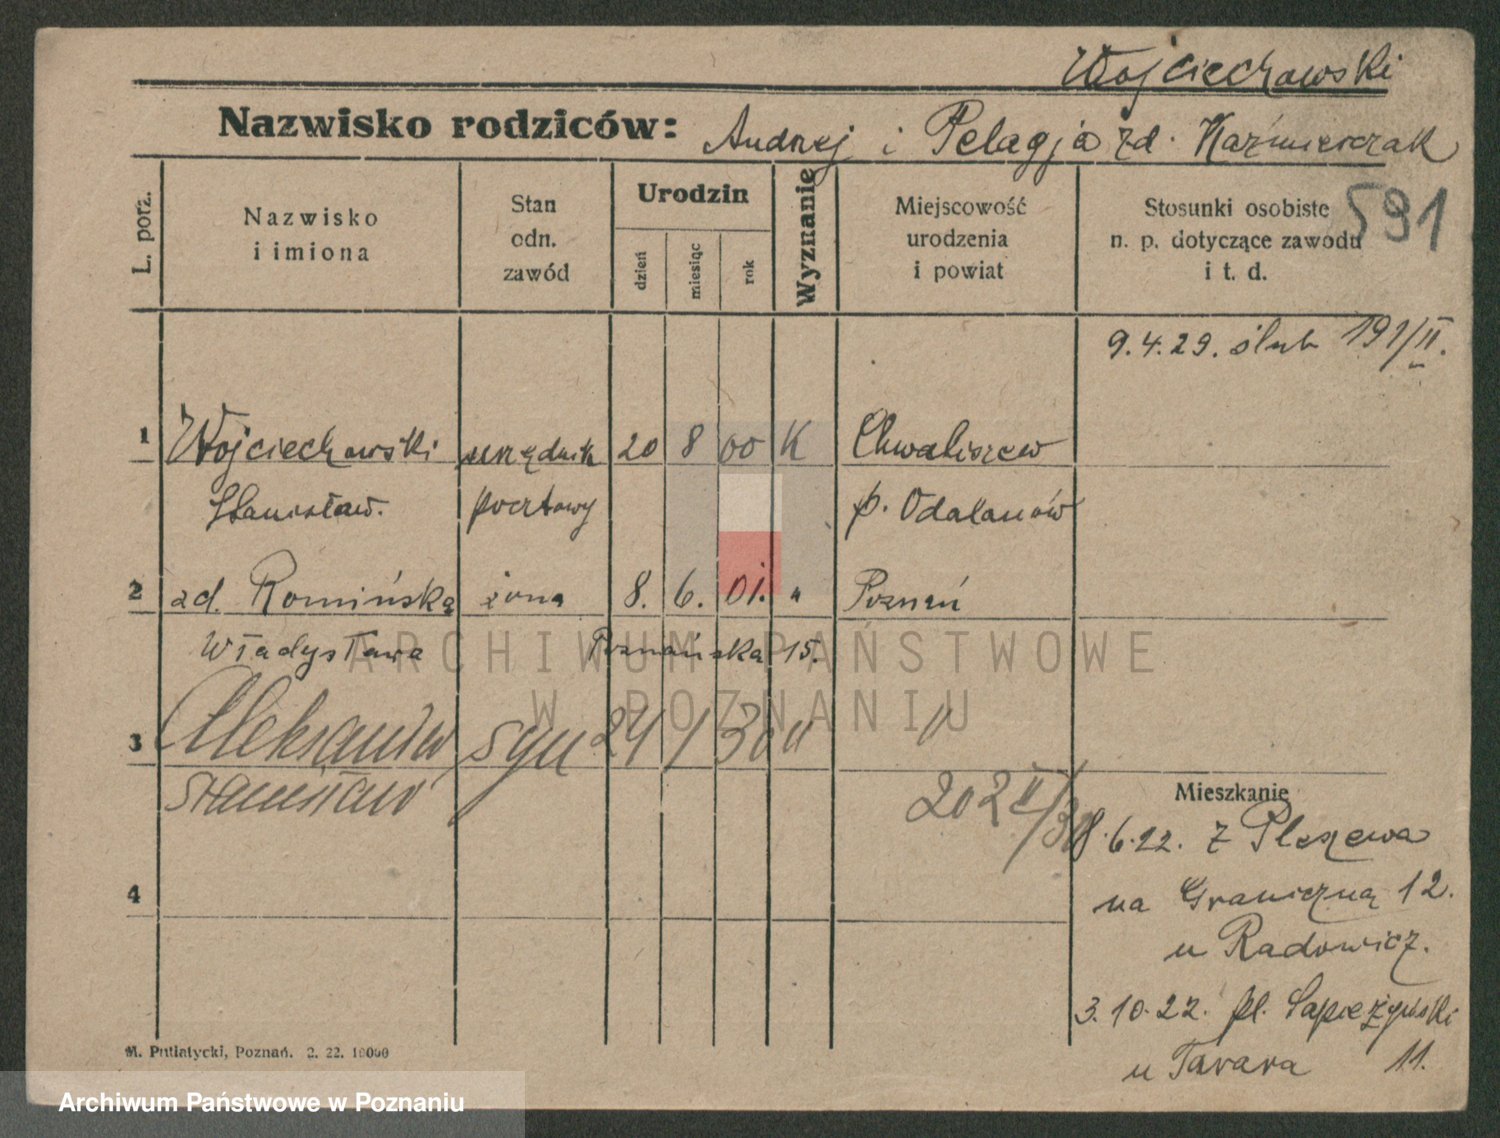 Wojciechowski
Nazwisko rodziców: Andrzej i Pelagja zd. Kaźmierczak
L. porz.
Nazwisko
i imiona
Stan
odn.
zawód
Urodzin
dzień
miesiąc
rok
Wyznanie
Miejscowość
urodzenia
i powiat
Stosunki osobiste
n. p. dotyczące zawodu
i t. d.
591
9.4.29. ślub 191/II.
1 Wojciechowski urzędnik 20 8 00 K Chwaliszew
Stanisław. pocztowy p. Odalanów
2 zd. Romińska żona 8. 6. 01. " Poznań
Władysława Poznańska 15.
3 Aleksander syn 24 / 30 " "
Stanisław
202 II/30
Mieszkanie
8.6.22. z Pleszewa
4
na Graniczną 12.
u Radowicz.
3.10.22. pl. Sapieżyński
u Tarara 11.
M. Putiatycki, Poznań. 2. 22. 10000
ARCHIWUM PAŃSTWOWE
W POZNANIU
Archiwum Państwowe w Poznaniu